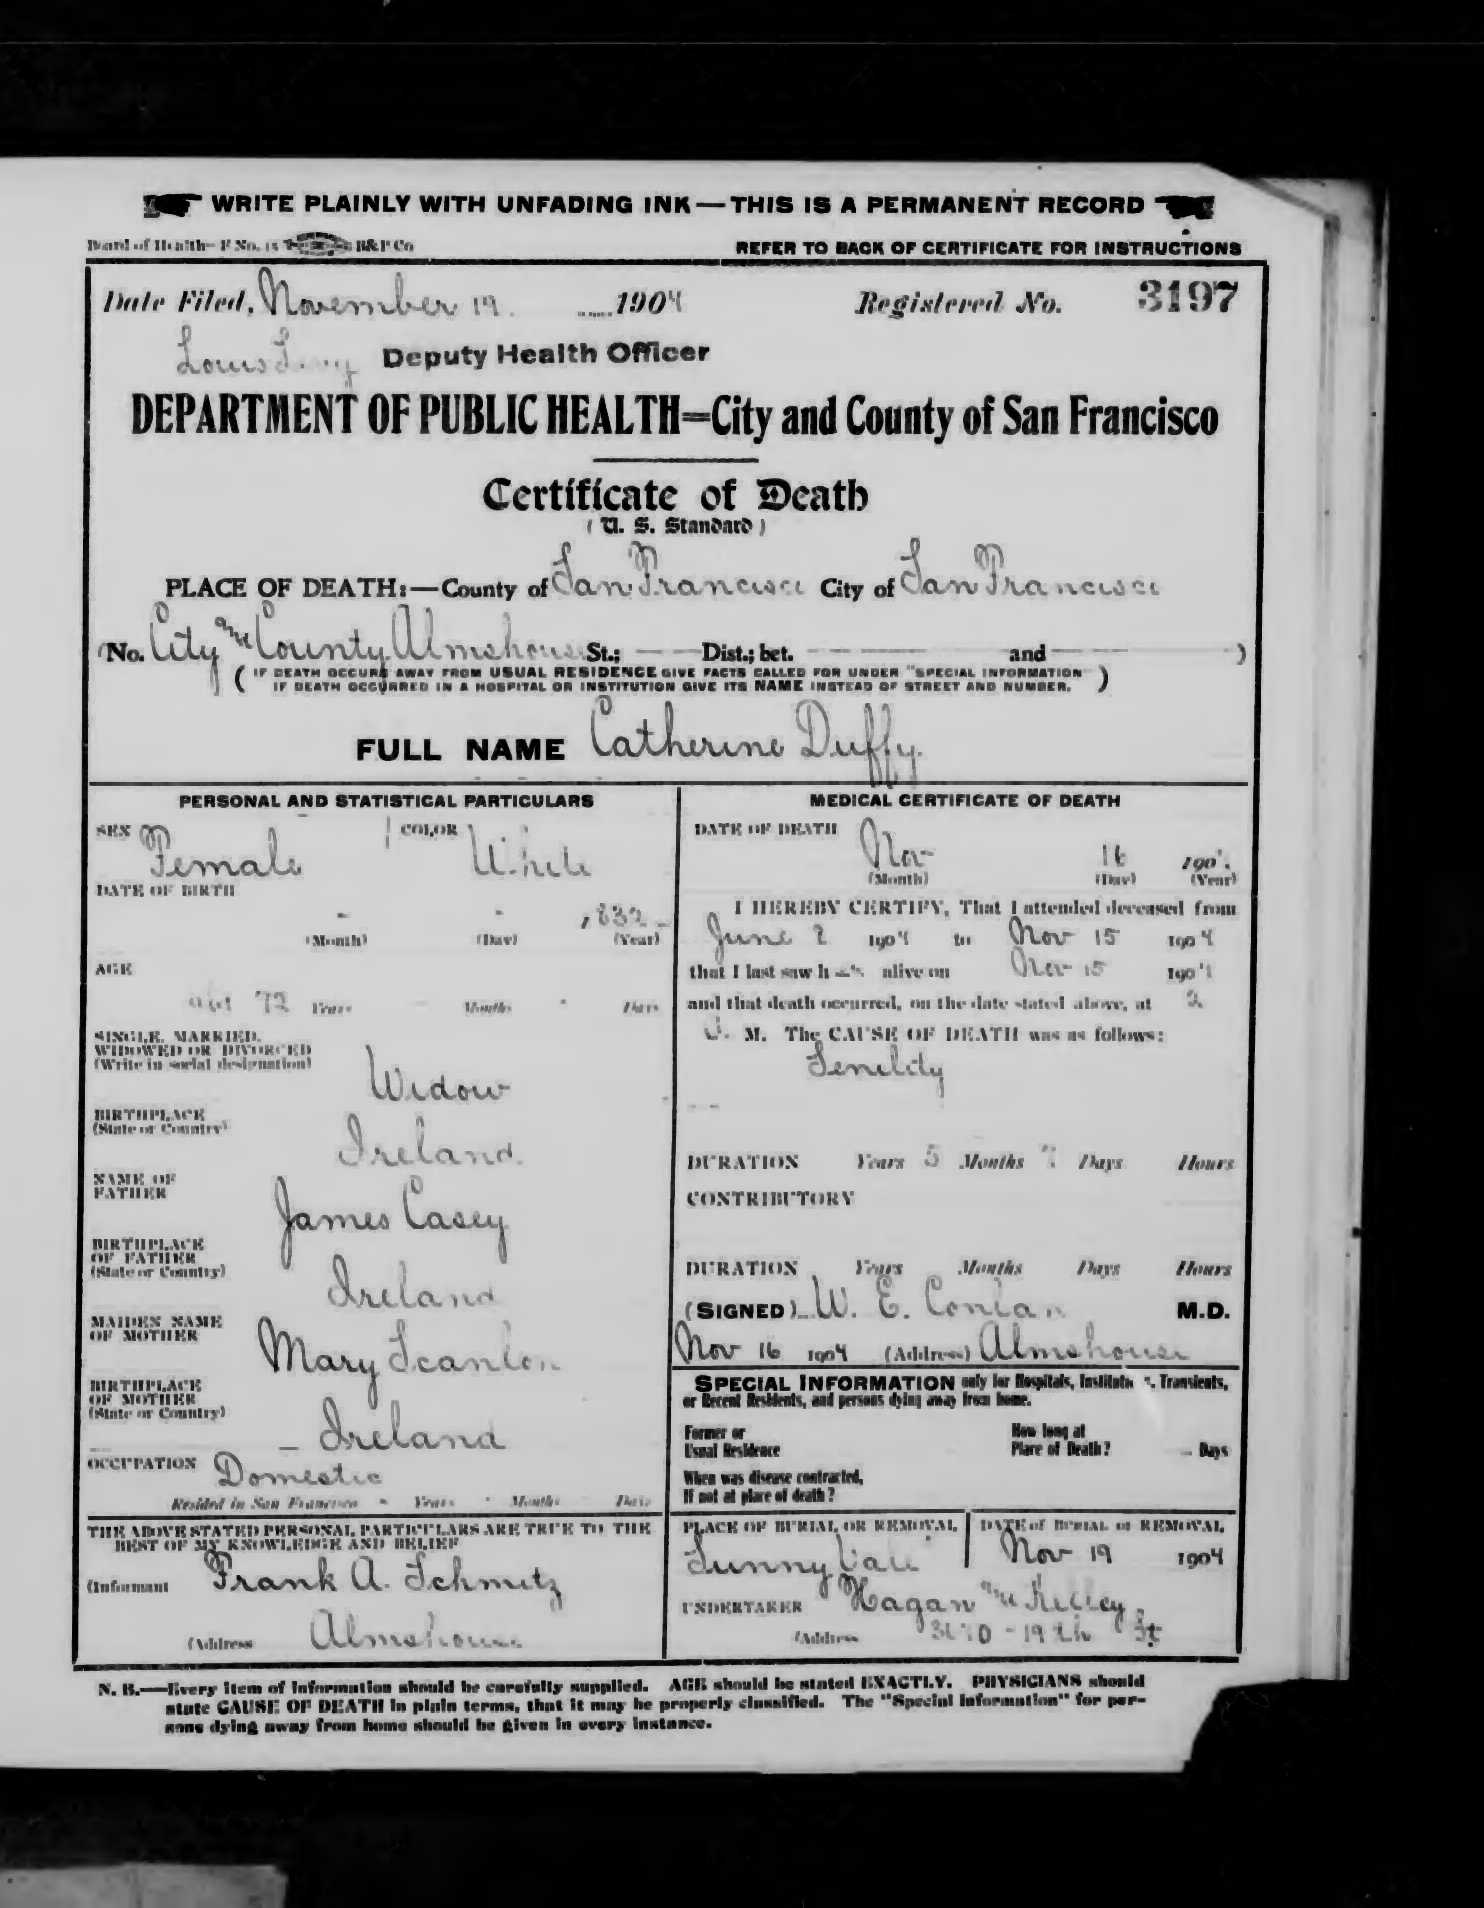 WRITE PLAINLY WITH UNFADING INK—THIS IS A PERMANENT RECORD
Board of Health—F No. 15 B&P Co
REFER TO BACK OF CERTIFICATE FOR INSTRUCTIONS
Date Filed, November 19. 1904 Registered No. 3197
Louis Levy Deputy Health Officer
DEPARTMENT OF PUBLIC HEALTH=City and County of San Francisco
Certificate of Death
(U. S. Standard)
PLACE OF DEATH:—County of San Francisco City of San Francisco
(No. City and County Almshouse St.; — Dist.; bet. — and — )
(IF DEATH OCCURS AWAY FROM USUAL RESIDENCE GIVE FACTS CALLED FOR UNDER "SPECIAL INFORMATION"
IF DEATH OCCURRED IN A HOSPITAL OR INSTITUTION GIVE ITS NAME INSTEAD OF STREET AND NUMBER.)
FULL NAME Catherine Duffy.
PERSONAL AND STATISTICAL PARTICULARS
SEX Female COLOR White
DATE OF BIRTH
- - 1832
(Month) (Day) (Year)
AGE
abt 72 Years Months Days
SINGLE, MARRIED,
WIDOWED OR DIVORCED
(Write in social designation)
Widow
BIRTHPLACE
(State or Country)
Ireland.
NAME OF
FATHER
James Casey
BIRTHPLACE
OF FATHER
(State or Country)
Ireland
MAIDEN NAME
OF MOTHER
Mary Scanlon
BIRTHPLACE
OF MOTHER
(State or Country)
Ireland
OCCUPATION Domestic
Resided in San Francisco - Years Months Days
THE ABOVE STATED PERSONAL PARTICULARS ARE TRUE TO THE
BEST OF MY KNOWLEDGE AND BELIEF
(Informant Frank A. Schmitz
(Address Almshouse
MEDICAL CERTIFICATE OF DEATH
DATE OF DEATH
Nov 16 190
(Month) (Day) (Year)
I HEREBY CERTIFY, That I attended deceased from
June 2 1904 to Nov 15 1904
that I last saw her alive on Nov 15 1904
and that death occurred, on the date stated above, at 2
M. The CAUSE OF DEATH was as follows:
Senility
DURATION Years 5 Months Days Hours
CONTRIBUTORY
DURATION Years Months Days Hours
(SIGNED) W. E. Conlan M.D.
Nov 16 1904 (Address) Almshouse
SPECIAL INFORMATION only for Hospitals, Institutions, Transients,
or Recent Residents, and persons dying away from home.
Former or
Usual Residence
How long at
Place of Death? Days
When was disease contracted,
If not at place of death?
PLACE OF BURIAL OR REMOVAL
Sunny Vale
DATE of BURIAL or REMOVAL
Nov 19 1904
UNDERTAKER Hagan and Kelley
(Address - 19th St
N. B.—Every item of information should be carefully supplied. AGE should be stated EXACTLY. PHYSICIANS should
state CAUSE OF DEATH in plain terms, that it may be properly classified. The "Special Information" for per-
sons dying away from home should be given in every instance.